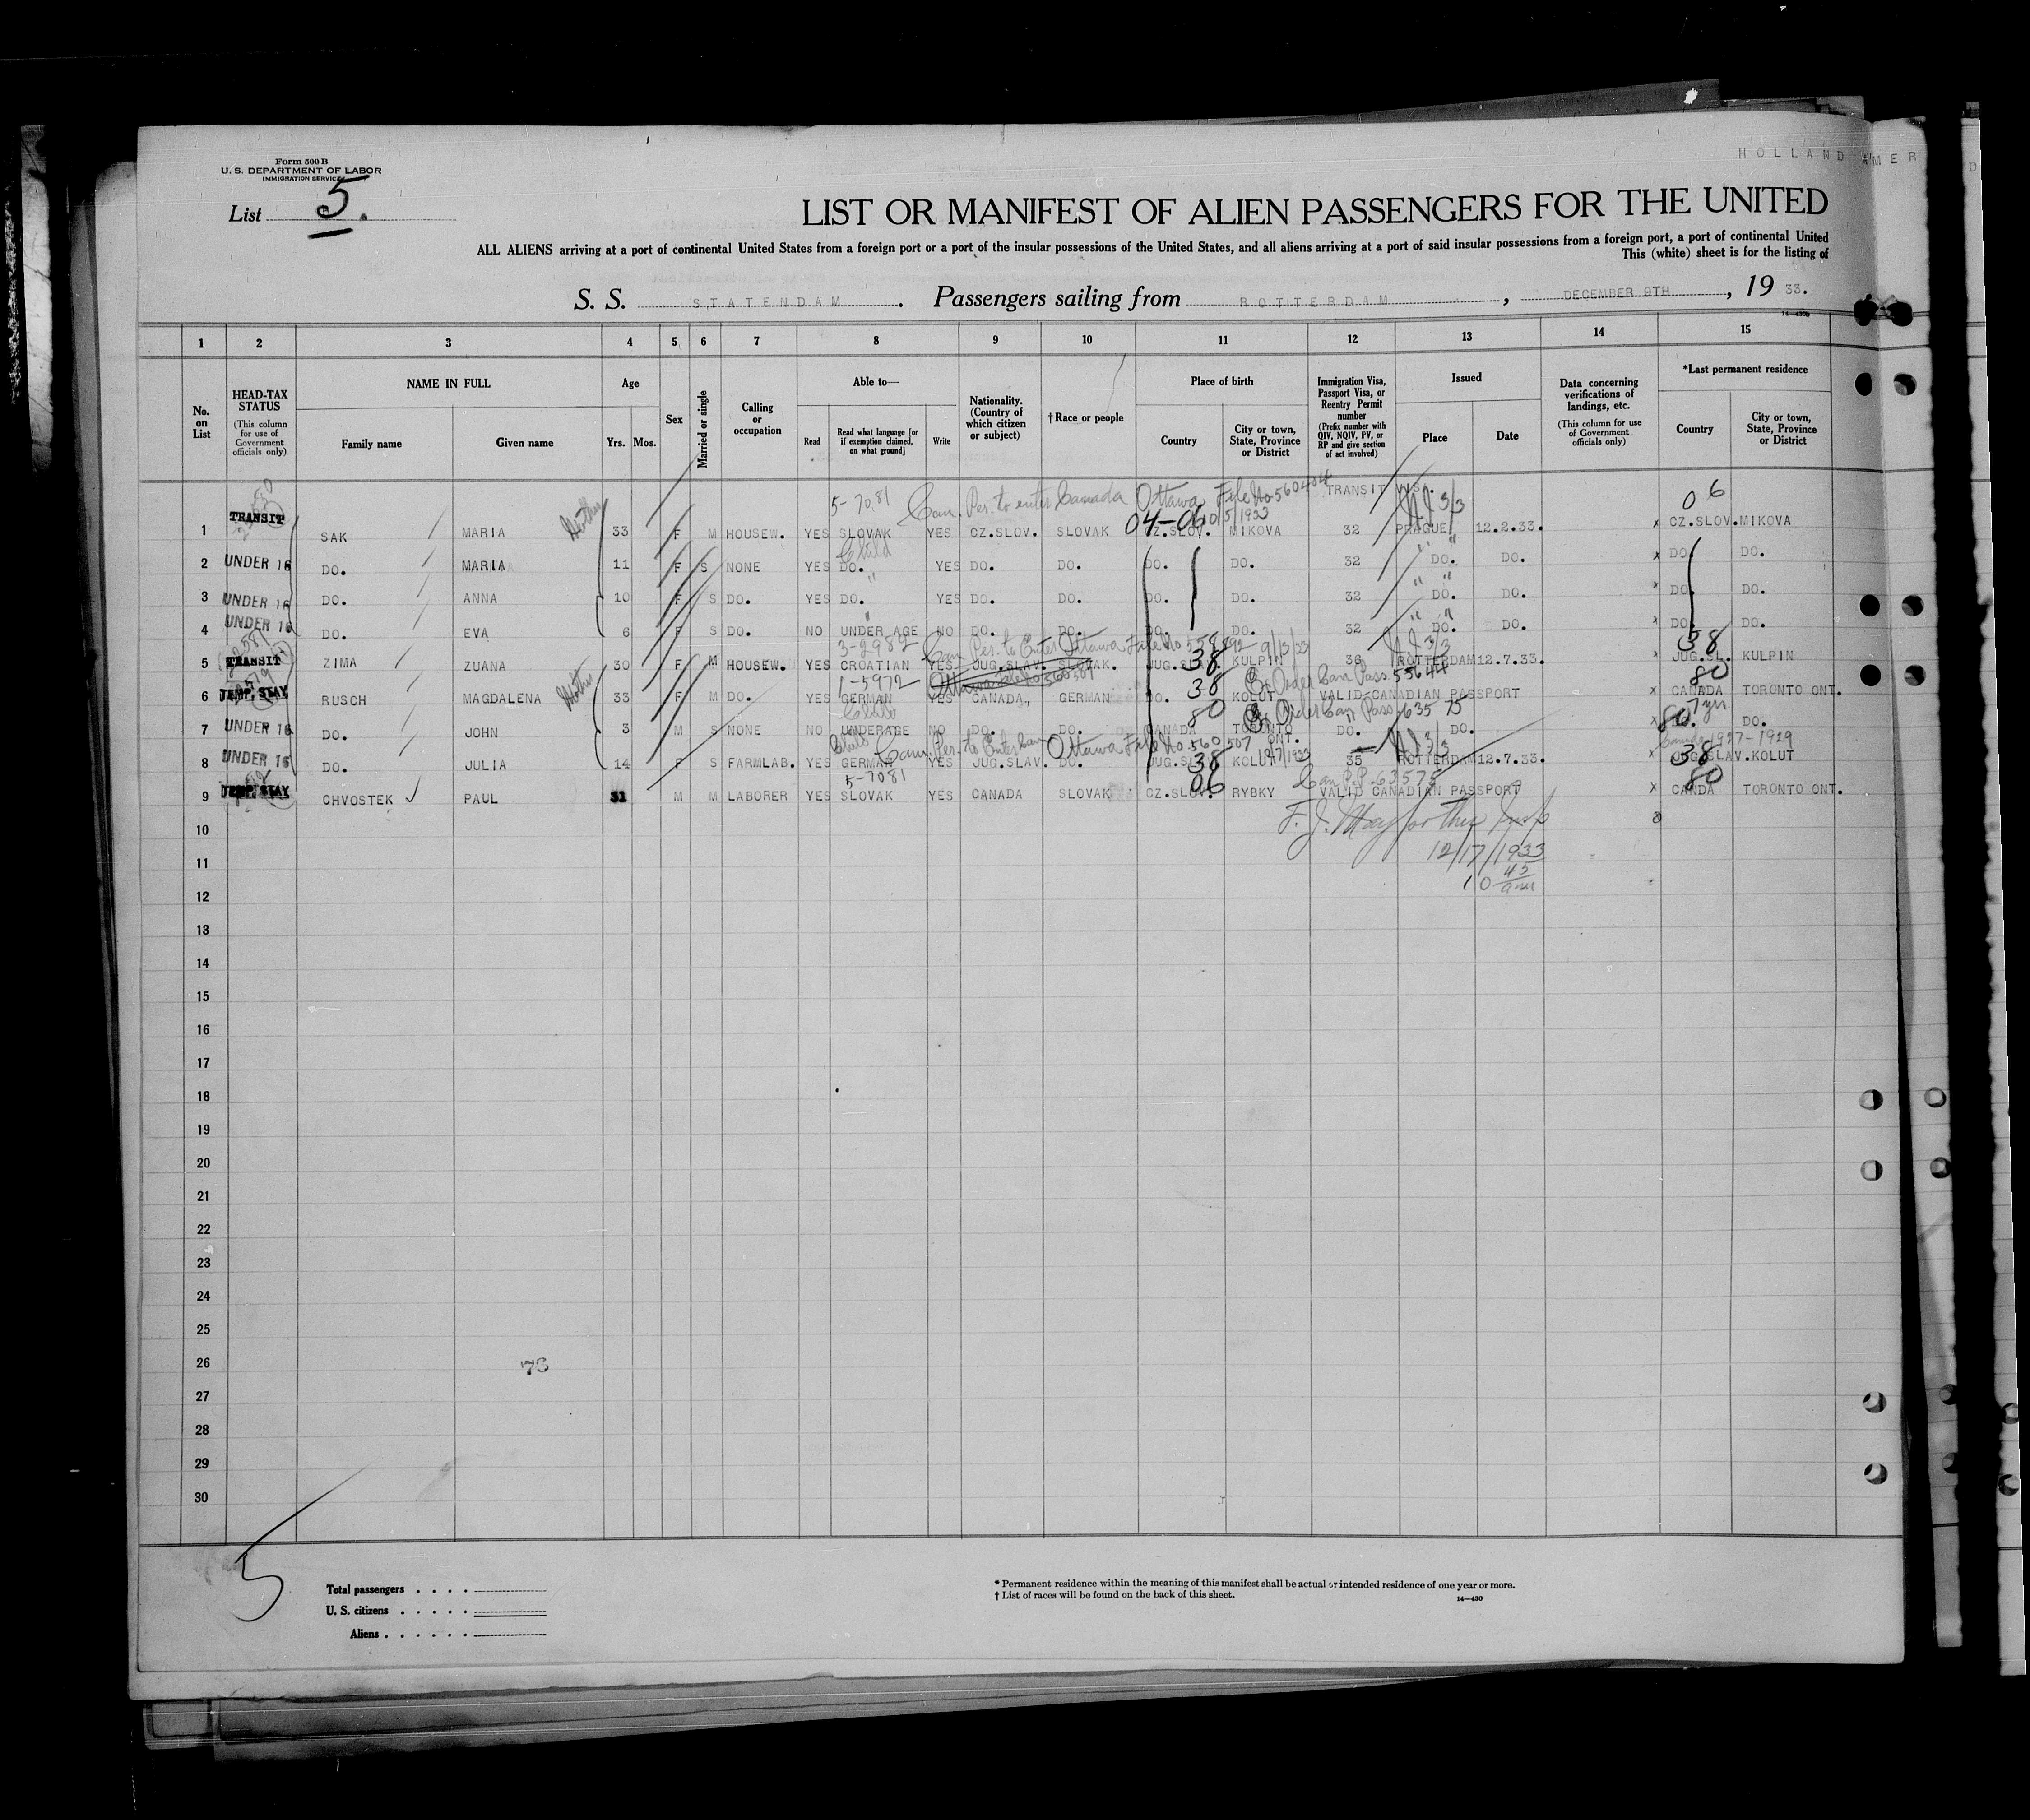 HOLLAND AMER
Form 500 B
U. S. DEPARTMENT OF LABOR
IMMIGRATION SERVICE
List 5.
LIST OR MANIFEST OF ALIEN PASSENGERS FOR THE UNITED
ALL ALIENS arriving at a port of continental United States from a foreign port or a port of the insular possessions of the United States, and all aliens arriving at a port of said insular possessions from a foreign port, a port of continental United
This (white) sheet is for the listing of
S. S. STATENDAM. Passengers sailing from ROTTERDAM, DECEMBER 9TH, 19 33.
14—430b
1 2 3 4 5 6 7 8 9 10 11 12 13 14 15
No. on List
HEAD-TAX STATUS (This column for use of Government officials only)
NAME IN FULL
Family name Given name
Age
Yrs. Mos.
Sex
Married or single
Calling or occupation
Able to—
Read Read what language [or if exemption claimed, on what ground] Write
Nationality. (Country of which citizen or subject)
†Race or people
Place of birth
Country City or town, State, Province or District
Immigration Visa, Passport Visa, or Reentry Permit number (Prefix number with QIV, NQIV, PV, or RP and give section of act involved)
Issued
Place Date
Data concerning verifications of landings, etc. (This column for use of Government officials only)
*Last permanent residence
Country City or town, State, Province or District
5-7081 Can. Per. to enter Canada Ottawa File No 560404 TRANSIT VISA. 06
04-06 10/5/1933 3/3
1 TRANSIT SAK MARIA Mother 33 F M HOUSEW. YES SLOVAK YES CZ.SLOV. SLOVAK CZ.SLOV. MIKOVA 32 PRAGUE 12.2.33. x CZ.SLOV. MIKOVA
Child " "
2 UNDER 16 DO. MARIA 11 F S NONE YES DO. YES DO. DO. DO. DO. 32 DO. DO. x DO. DO.
" " "
3 UNDER 16 DO. ANNA 10 F S DO. YES DO. YES DO. DO. DO. DO. 32 DO. DO. x DO. DO.
" " "
4 UNDER 16 DO. EVA 6 F S DO. NO UNDER AGE NO DO. DO. DO. DO. 32 DO. DO. x DO. DO.
3-2982 Can Per. to Enter Ottawa File No 9/13/33 3/3 38
5 TRANSIT ZIMA ZUANA 30 F M HOUSEW. YES CROATIAN YES JUG.SLAV. SLOVAK. JUG.SLAV. 38 KULPIN 36 ROTTERDAM 12.7.33. x JUG.SL. KULPIN
1-5972 Ottawa File No 560507 Can Pass. 55644 80
6 TEMP. STAY RUSCH MAGDALENA Mother 33 F M DO. YES GERMAN YES CANADA. GERMAN DO. 38 KOLUT VALID CANADIAN PASSPORT x CANADA TORONTO ONT.
Child 80 Can Pass 63575 7 yrs
7 UNDER 16 DO. JOHN 3 M S NONE NO UNDERAGE NO DO. DO. CANADA TORONTO ONT. DO. DO. x DO. 80 DO.
Child Can Per. to Enter Can Ottawa File No 560507 12/7/1933 3/3 Canada 1927-1929
8 UNDER 16 DO. JULIA 14 F S FARMLAB. YES GERMAN YES JUG.SLAV. DO. JUG.SL. 38 KOLUT 35 ROTTERDAM 12.7.33. x JUG.SLAV. 38 KOLUT
5-7081 06 Can P.P. 63575 80
9 TEMP. STAY CHVOSTEK PAUL 31 M M LABORER YES SLOVAK YES CANADA SLOVAK CZ.SLOV. RYBKY VALID CANADIAN PASSPORT x CANDA TORONTO ONT.
10
11 12/17/1933
12 10 45 am
13
14
15
16
17
18
19
20
21
22
23
24
25
26 73
27
28
29
30
5
Total passengers
U. S. citizens
Aliens
* Permanent residence within the meaning of this manifest shall be actual or intended residence of one year or more.
† List of races will be found on the back of this sheet.
14—430